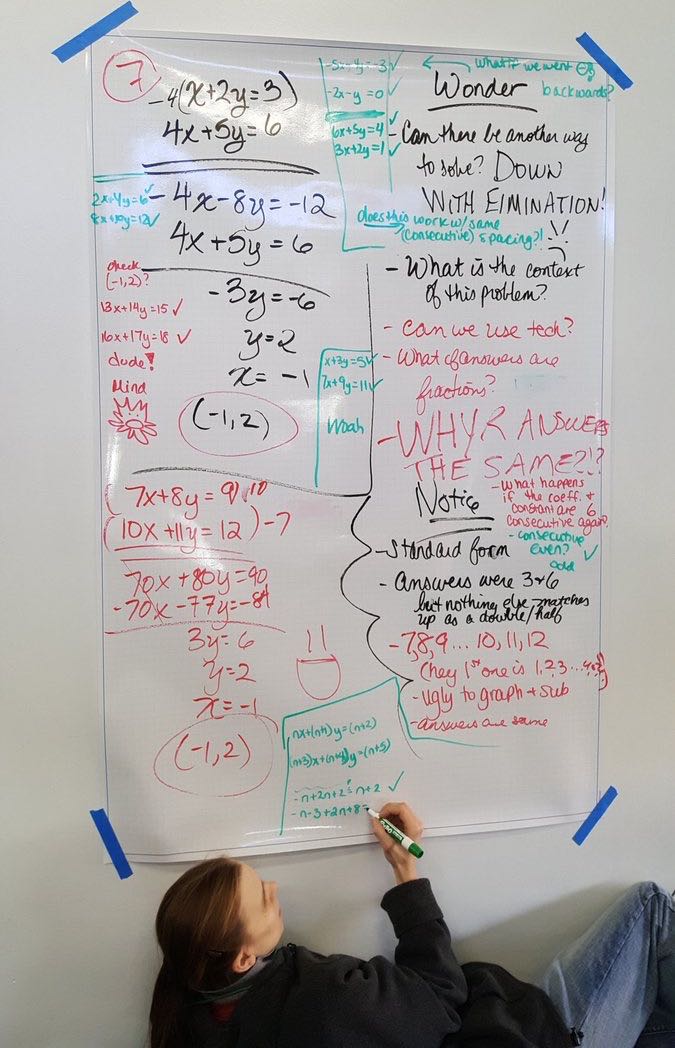 7
-4(x+2y=3)
4x+5y=6
-4x-8y=-12
4x+5y=6
-3y=-6
y=2
x=-1
(-1,2)
2x+4y=6✓
8x+10y=12✓
check
(-1,2)?
13x+14y=15 ✓
16x+17y=18 ✓
dude!
Mind
-5x-4y=-3 ✓
-2x-y=0 ✓
6x+5y=4 ✓
3x+2y=1 ✓
x+3y=5✓
7x+9y=11✓
Woah
(7x+8y=9).10
(10x+11y=12)-7
70x+80y=90
-70x-77y=-84
3y=6
y=2
x=-1
(-1,2)
nx+(n+1)y=(n+2)
(n+3)x+(n+4)y=(n+5)
-n+2n+2≟n+2 ✓
-n-3+2n+8=
what if we went
backwards?
Wonder
-Can there be another way
to solve? DOWN
WITH EIMINATION!
does this work w/same
(consecutive) spacing?!
- What is the context
of this problem?
- Can we use tech?
- What if answers are
fractions?
-WHY R ANSWERS
THE SAME?!?
- What happens
if the coeff. +
constant are 6
consecutive again?
- consecutive
even? ✓
odd
Notice
- Standard form
- Answers were 3+6
but nothing else matches
up as a double/half
-7,8,9...10,11,12
(hey 1st one is 1,2,3...4,5,6)
-Ugly to graph + sub
-Answers are same